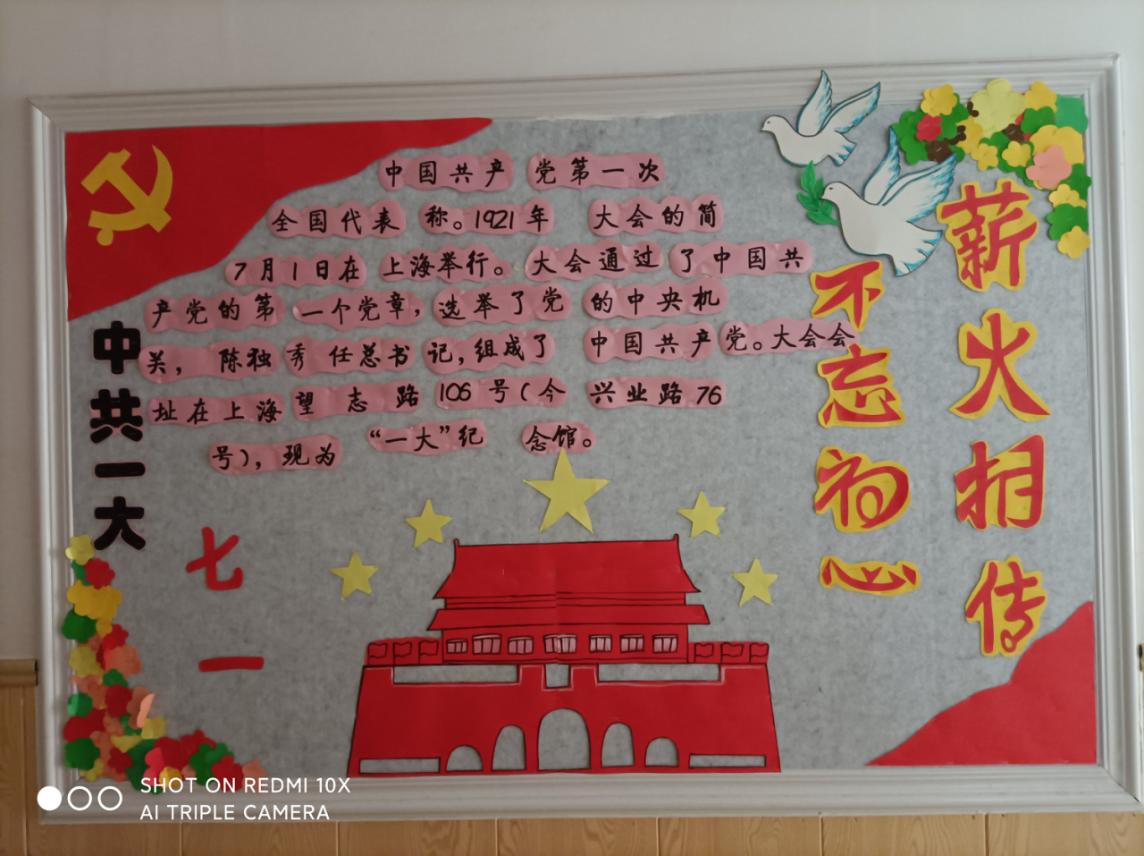 中国共产党第一次
全国代表称。1921年大会的简
7月1日在上海举行。大会通过了中国共
产党的第一个党章,选举了党的中央机
关,陈独秀任总书记,组成了中国共产党。大会会
址在上海望志路106号(今兴业路76
号),现为“一大”纪念馆。
中共一大
七一
薪火相传
不忘初心
SHOT ON REDMI 10X
AI TRIPLE CAMERA